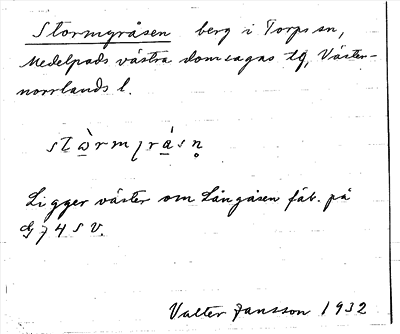 Stormyråsen berg i Torps sn,
Medelpads västra domsagas tg, Väster-
norrlands l.
Ligger väster om Långåsen fäb. på
G 74 SV.
Valter Jansson 1932